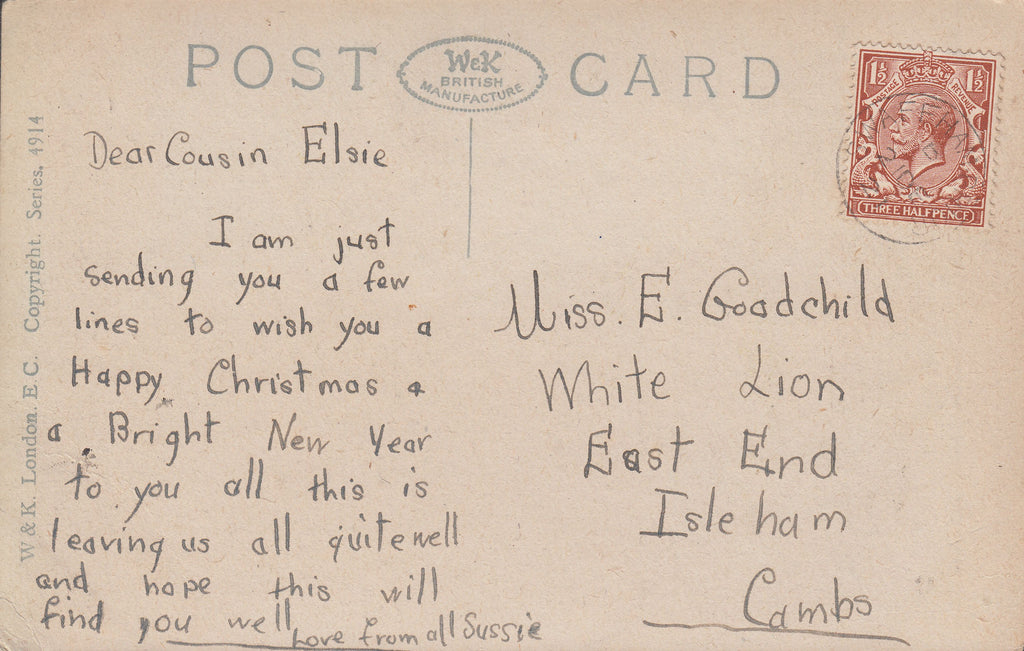 POST CARD
W&K
BRITISH
MANUFACTURE
1½ 1½
POSTAGE REVENUE
THREE HALFPENCE
W & K. London. E C. Copyright. Series. 4914
Dear Cousin Elsie
I am just
sending you a few
lines to wish you a
Happy Christmas &
a Bright New Year
to you all this is
leaving us all quite well
and hope this will
find you well
Love from all Sussie
Miss. E. Goodchild
White Lion
East End
Isleham
Cambs